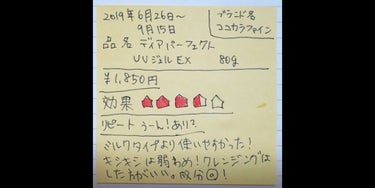 2019年6月26日〜
9月15日
ブランド名
ココカラファイン
品名 ディアパーフェクト
UVジェルEX 80g
¥1,850円
効果
リピート うーん!あり?
ミルクタイプより使いやすかった!
キシキシは弱め!クレンジングは
した方がいい。成分◎!